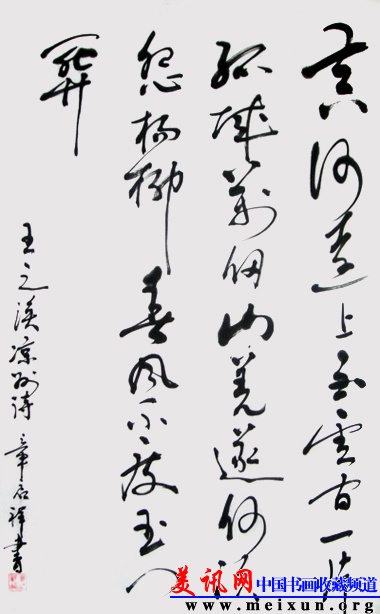 黄河遠上白雲间一片
孤城萬仞山羌遂何须
怨楊柳春風不度玉门
關
王之渙凉州诗 章祥書
美讯网 中国书画收藏频道
www.meixun.org